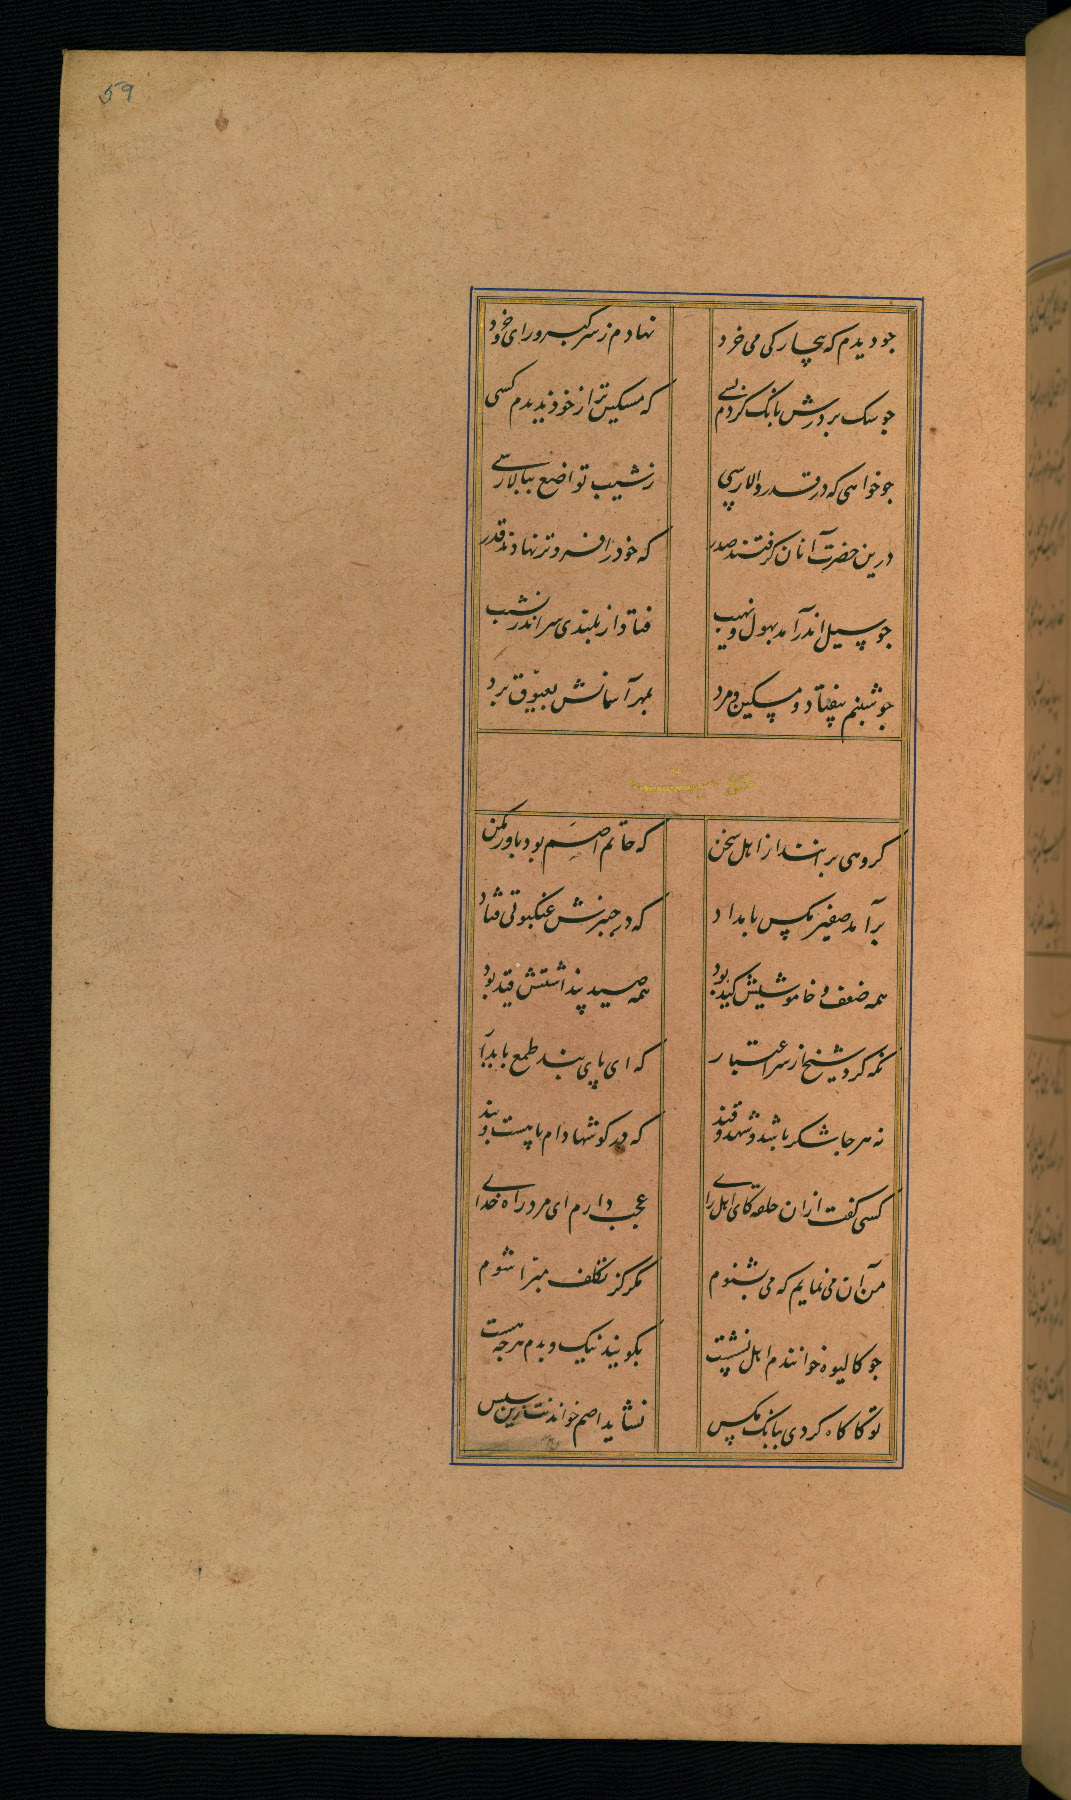 59
جو دیدم که بیچارکی می خرد نهادم ز سر کبر و رای و خرد
جو سک بر درش بانک کردم بسے که مسکین تر از خود ندیدم کسی
جو خواهی که در قدر والا رسی ز شیب تواضع ببالا رسے
درین حضرت آنان کرفتند صدر که خود را فروتر نهادند قدر
جو سیل اندر آمد بهول و نهیب فتاد از بلندی بسر اندر نشیب
جو شبنم بیفتاد و مسکین و مرد بمهر آسمانش بعیوق برد
حکایت
کروهی برانند از اهل سخن که حاتم اصم بود باور مکن
برآمد صفیر مکس بامداد که در چنبرش عنکبوتی فتاد
همه ضعف و خاموشیش کید بود همه صید پنداشتش قید بود
نکه کرد شیخ از سر اعتبار که ای پای بند طمع پایدار
نه هر جا شکر باشد و شهد و قند که در کوشها دام یابست و بند
کسی کفت از ان حلقهٔ اهل رای عجب دارم ای مرد راه خدای
من آن می نمایم که می بشنوم مکر کز تکلف مبرا شوم
جو کالیوه خوانندم اهل نشست بکویند نیک و بدم هر چه هست
تو کاکاه کردی ببانک مکس نشاید اصم خواندنت زین سپس